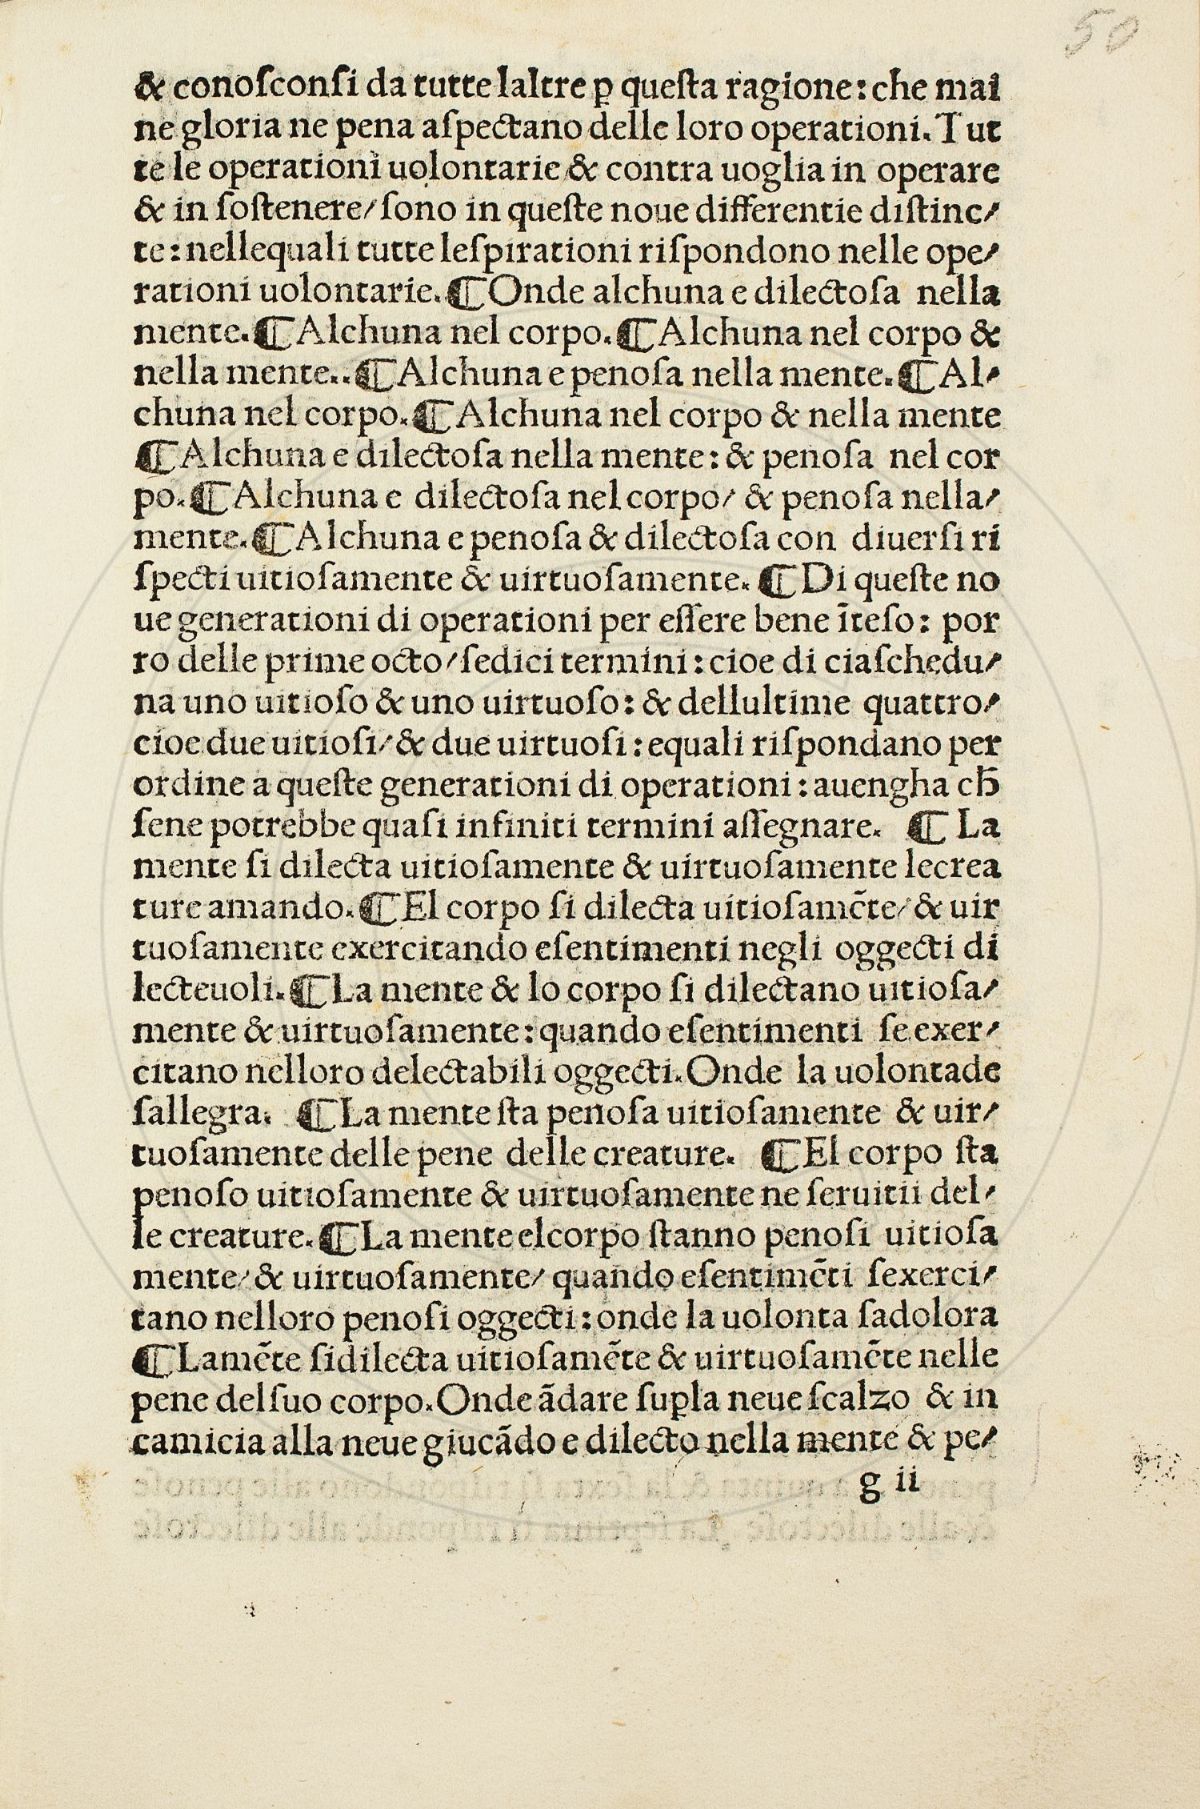 50
& conoſconſi da tutte laltre ꝑ queſta ragione: che mai
ne gloria ne pena aſpectano delle loro operationi. Tut
te le operationi uolontarie & contra uoglia in operare
& in ſoſtenere/ ſono in queſte noue differentie diſtinc/
te: nellequali tutte leſpirationi riſpondono nelle ope/
rationi uolontarie. ¶ Onde alchuna e dilectoſa nella
mente. ¶ Alchuna nel corpo. ¶ Alchuna nel corpo &
nella mente.. ¶ Alchuna e penoſa nella mente. ¶ Al/
chuna nel corpo. ¶ Alchuna nel corpo & nella mente
¶ Alchuna e dilectoſa nella mente: & penoſa nel cor
po. ¶ Alchuna e dilectoſa nel corpo/ & penoſa nella/
mente. ¶ Alchuna e penoſa & dilectoſa con diuerſi ri
ſpecti uitioſamente & uirtuoſamente. ¶ Di queſte no
ue generationi di operationi per eſſere bene īteſo: por
ro delle prime octo/ ſedici termini: cioe di ciaſchedu/
na uno uitioſo & uno uirtuoſo: & dellultime quattro/
cioe due uitioſi/ & due uirtuoſi: equali riſpondano per
ordine a queſte generationi di operationi: auengha cħ
ſene potrebbe quaſi infiniti termini aſſegnare. ¶ La
mente ſi dilecta uitioſamente & uirtuoſamente lecrea
ture amando. ¶ El corpo ſi dilecta uitioſamēte/ & uir
tuoſamente exercitando eſentimenti negli oggecti di
lecteuoli. ¶ La mente & lo corpo ſi dilectano uitioſa/
mente & uirtuoſamente: quando eſentimenti ſe exer/
citano nelloro delectabili oggecti. Onde la uolontade
ſallegra. ¶ La mente ſta penoſa uitioſamente & uir/
tuoſamente delle pene delle creature. ¶ El corpo ſta
penoſo uitioſamente & uirtuoſamente ne ſeruitii del/
le creature. ¶ La mente elcorpo ſtanno penoſi uitioſa
mente/ & uirtuoſamente/ quando eſentimēti ſexerci/
tano nelloro penoſi oggecti: onde la uolonta ſadolora
¶ Lamēte ſidilecta uitioſamēte & uirtuoſamēte nelle
pene delſuo corpo. Onde ādare ſuꝑla neue ſcalzo & in
camicia alla neue giucādo e dilecto nella mente & pe/
g ii